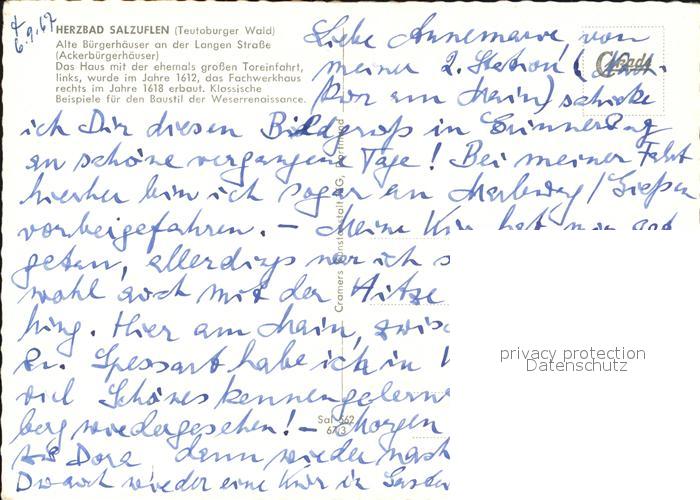 6.9.67
HERZBAD SALZUFLEN (Teutoburger Wald)
Alte Bürgerhäuser an der Langen Straße
(Ackerbürgerhäuser)
Das Haus mit der ehemals großen Toreinfahrt,
links, wurde im Jahre 1612, das Fachwerkhaus
rechts im Jahre 1618 erbaut. Klassische
Beispiele für den Baustil der Weserrenaissance.
Cramers Kunstanstalt KG, Dortmund
Sal 562
67/3
Cekade
Liebe Annemarie, von
meiner 2. Station (
Kur am Main) schicke
ich Dir diesen Bildgruß in Erinnerung
an schöne vergangene Tage! Bei meiner Fahrt
hierher bin ich sogar an Marburg/Gießen
vorbeigefahren. – Meine Kur hat mir gut
getan, allerdings war ich s
wohl auch mit der Hitze
hing. Hier am Main, zwisc
Spessart habe ich in
viel Schönes kennengelernt
berg wiedergesehen! – Morgen
Dora dann wieder nach
wieder eine Kur in
privacy protection
Datenschutz